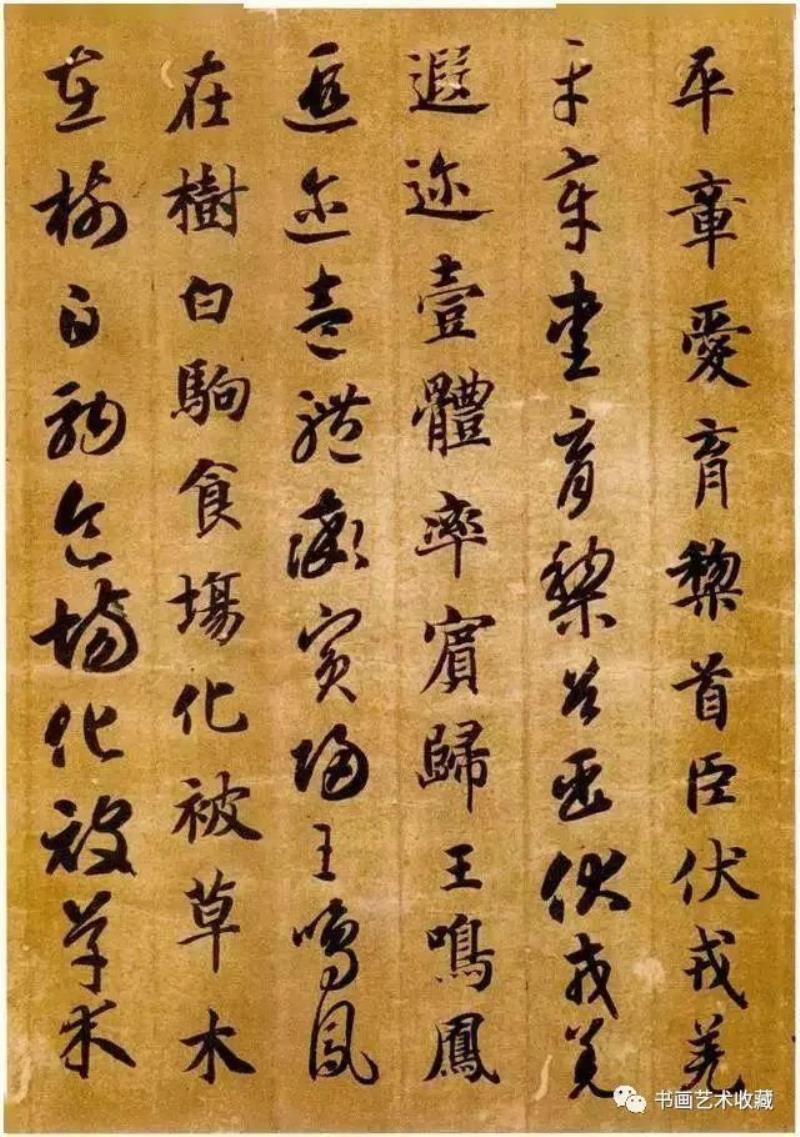 平章愛育黎首臣伏戎羌
平章愛育黎首臣伏戎羌
遐迩壹體率賓歸王鳴鳳
遐迩壹體率賓歸王鳴鳳
在樹白駒食塲化被草木
在樹白駒食場化被草木
书画艺术收藏